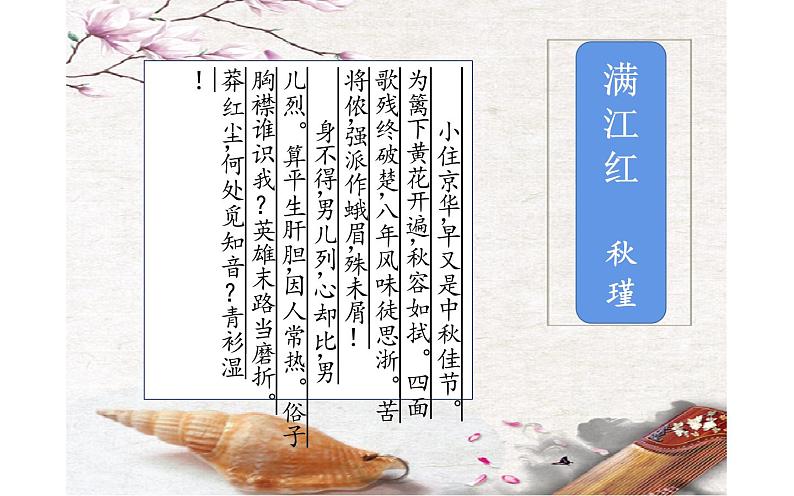 满江红 秋瑾
小住京华,早又是中秋佳节。
为篱下黄花开遍,秋容如拭。四面
歌残终破楚,八年风味徒思浙。苦
将侬,强派作蛾眉,殊未屑!
身不得,男儿列,心却比,男
儿烈。算平生肝胆,因人常热。俗子
胸襟谁识我?英雄末路当磨折。
莽红尘,何处觅知音?青衫湿
!